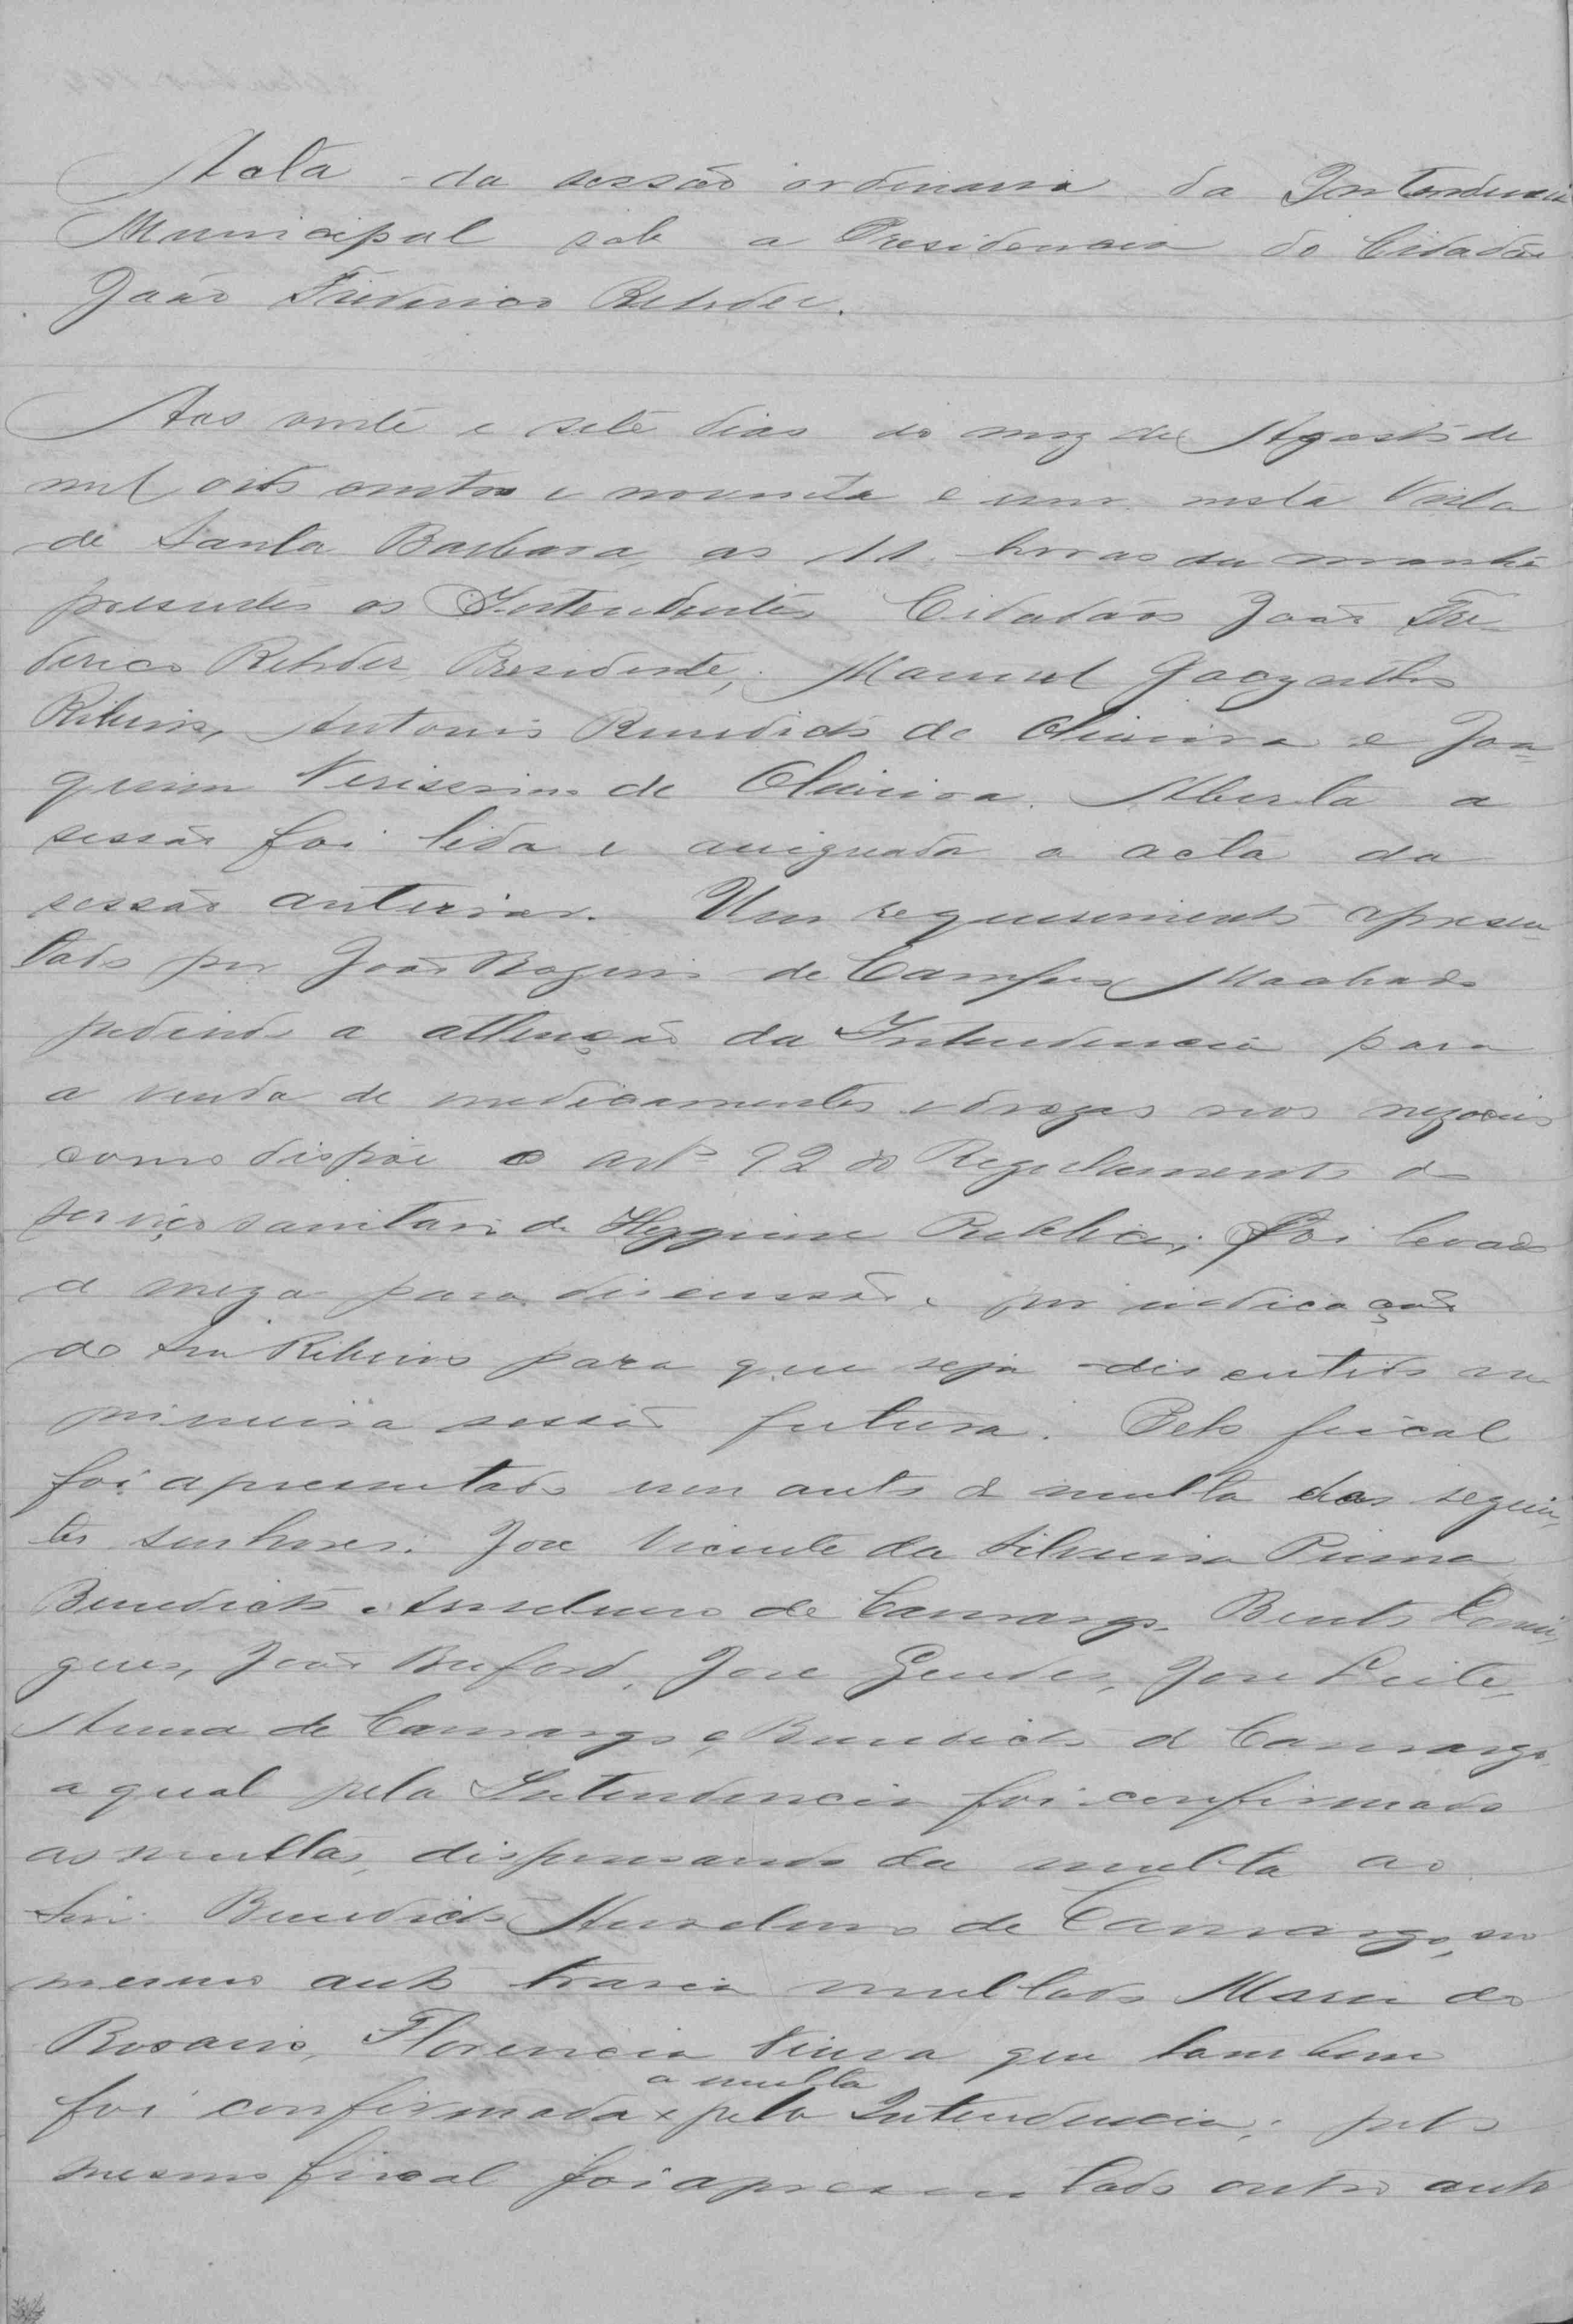 Acta da sessão ordinaria da Intendencia
Municipal sob a Presidencia do Cidadão
João Frederico Rehder.
Aos vinte e sete dias do mez de Agosto de
mil oito centos e noventa e um nesta Villa
de Santa Barbara, as 11 horas da manhã
presentes os Intendentes Cidadãos João Fre-
derico Rehder Presidente, Manoel
Ribeiro, Antonio Benedicto de Oliveira e Joa-
quim Verissimo de Oliveira. Aberta a
sessão foi lida e assignada a acta da
sessão anterior. Um requerimento apresen-
tado por João Rogerio de Campos Machado
pedindo a attenção da Intendencia para
a venda de medicamentos e drogas nos negocios
como dispõe o artº 92 do Regulamento do
serviço sanitario de Hygiene Publica; Foi levado
a meza para discussão, por indicação
do Snr Ribeiro para que seja discutido na
primeira sessão futura. Pelo fiscal
foi apresentado um auto de multa dos seguin-
tes senhores: Jose Vicente da Silveira
Benedicto Anselmo de Camargo, Bento Domin-
gues, João Buford, Jose Gendes, Jose Leite,
Anna de Camargo e Benedicto de Camargo,
a qual pela Intendencia foi confirmado
as multas, dispensando da multa ao
Snr. Benedicto Anselmo de Camargo, no
mesmo auto trazia multado Maria do
Rosario, Florencia Vieira que tambem
foi confirmada x a multa pela Intendencia; pelo
mesmo fiscal foi apresentado outro auto